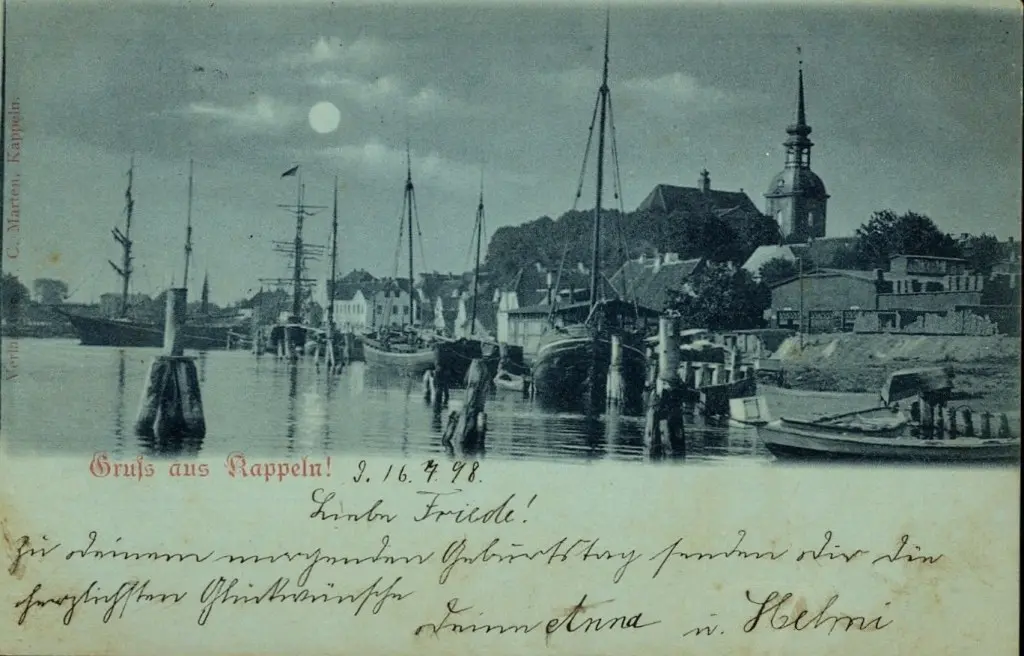 Verlag C. Marten, Kappeln.
Gruß aus Kappeln! d. 16.7.98.
Liebe Friede!
Zu deinem morgenden Geburtstag senden dir die
herzlichsten Glückwünsche
deine Anna u. Helmi